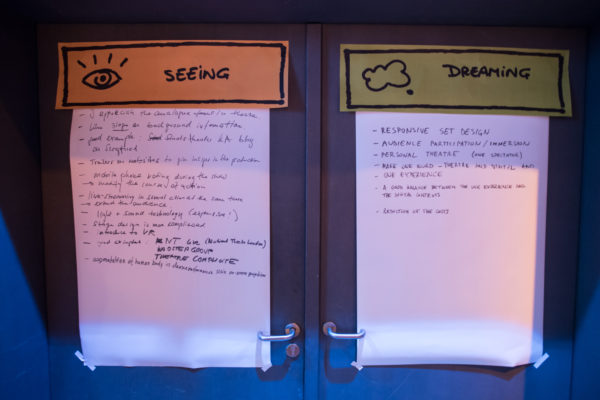 SEEING
the analogue in theatre
- Live as background information
- good example: Staatstheater blog
on Siegfried
- Trailers on websites to give insight in the production
- mobile phones voting during the show
→ modify the of action
- live-streaming in several cities at the same time
→ extend the audience
- light + sound technology
- Stage design is more complicated
- introduce to VR
- good examples: NT Live (National Theatre London)
WOOSTER GROUP
THEATRE COMPLICITE
- augmentation of human body in dance
DREAMING
- RESPONSIVE SET DESIGN
- AUDIENCE PARTICIPATION / IMMERSION
- PERSONAL THEATRE (ONE SPECTATOR)
- MAKE ONE WORLD - THEATRE AND DIGITAL AND
- ONE EXPERIENCE
- A GOOD BALANCE BETWEEN THE LIVE EXPERIENCE AND
THE DIGITAL CONTENTS
- REDUCTION OF THE COSTS